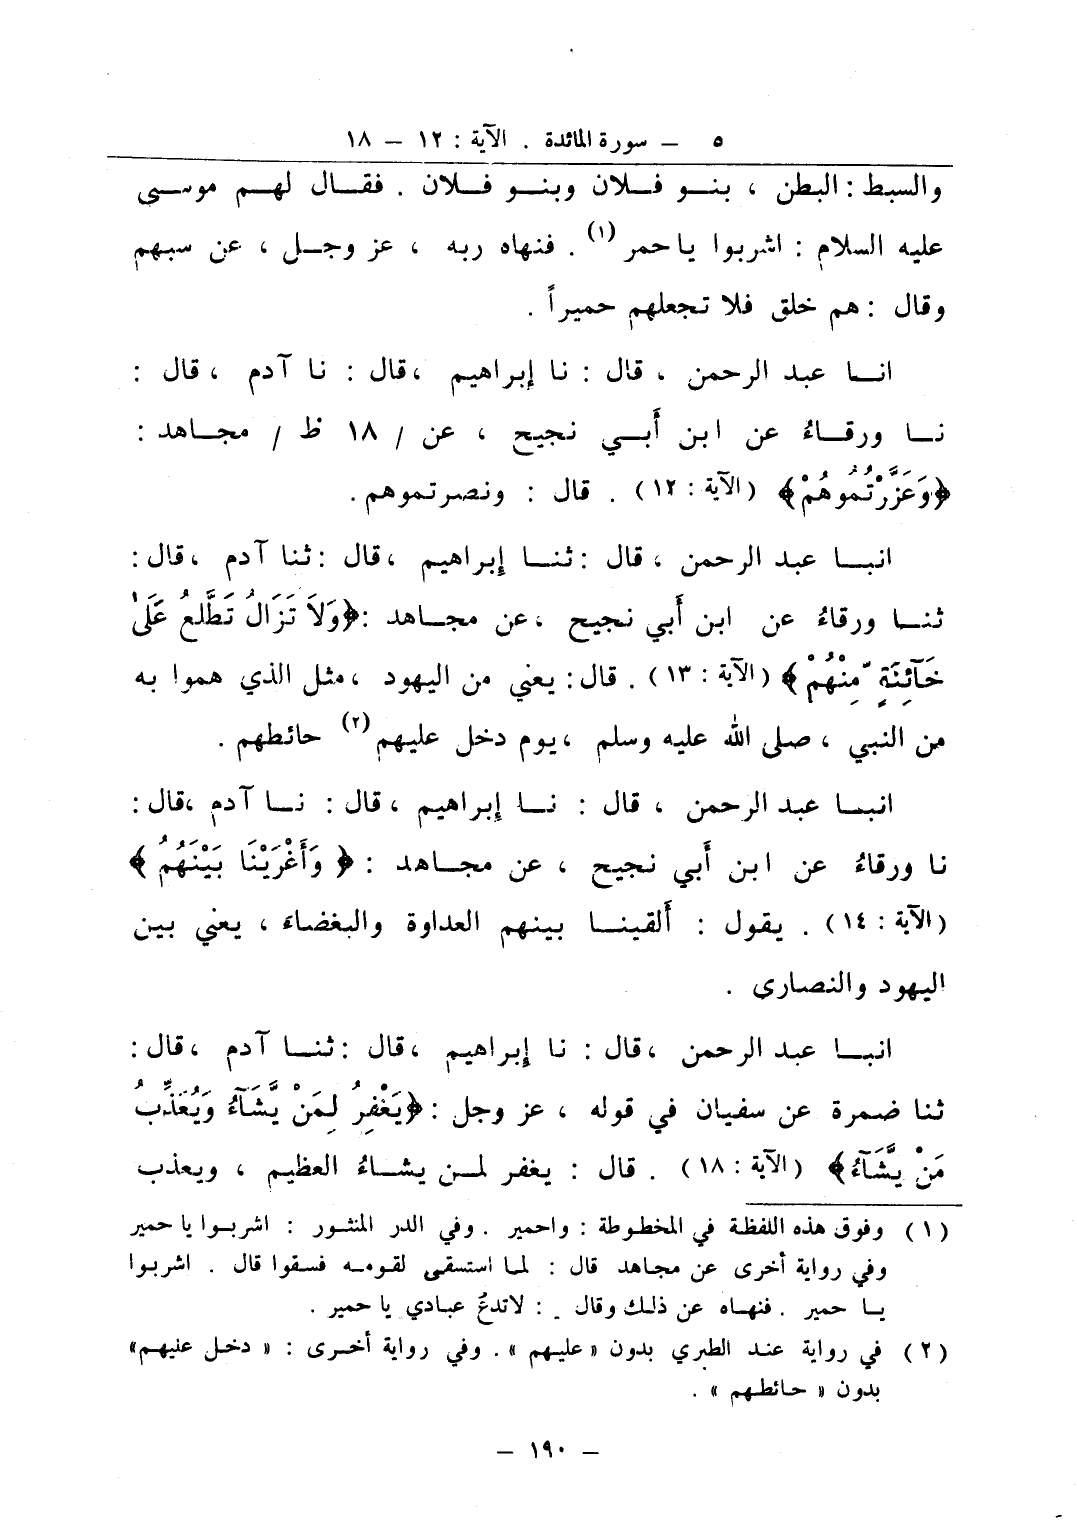 ٥ ـ سورة المائدة . الآية : ١٢ ـ ١٨
والسبط : البطن ، بنـو فـلان وبنـو فـلان . فقـال لهـم موسـى
عليه السلام : اشربوا يا حمر (١) . فنهاه ربه ، عز وجـل ، عن سبهم
وقال : هم خلق فلا تجعلهم حميراً .
انـا عبد الرحمن ، قال : نا إبراهيم ، قال : نا آدم ، قال :
نـا ورقـاءُ عن ابن أَبـي نجيح ، عن / ١٨ ظ / مجـاهد :
﴿وَعَزَّرْتُمُوهُمْ﴾ (الآية : ١٢) . قال : ونصرتموهم .
انبـا عبد الرحمن ، قال : ثنـا إبراهيم ، قال : ثنا آدم ، قال :
ثنـا ورقاءُ عن ابن أَبي نجيح ، عن مجـاهد : ﴿وَلاَ تَزَالُ تَطَّلعُ عَلَىٰ
خَآئِنَةٍ مِّنْهُمْ﴾ (الآية : ١٣) . قال : يعني من اليهود ، مثل الذي هموا به
من النبي ، صلى الله عليه وسلم ، يوم دخل عليهم (٢) حائطهم .
انبـا عبد الرحمن ، قال : نـا إبراهيم ، قال : نـا آدم ، قال :
نا ورقاءُ عن ابن أَبي نجيح ، عن مجـاهد : ﴿ وَأَغْرَيْنَا بَيْنَهُمُ ﴾
(الآية : ١٤) . يقول : أَلقينـا بينهم العداوة والبغضاءَ ، يعني بين
اليهود والنصارى .
انبـا عبد الرحمن ، قال : نا إبراهيم ، قال : ثنـا آدم ، قال :
ثنا ضمرة عن سفيان في قوله ، عز وجل : ﴿يَغْفِرُ لِمَنْ يَّشَآءُ وَيُعَذِّبُ
مَنْ يَّشَآءُ﴾ (الآية : ١٨) . قال : يغفر لمـن يشـاءُ العظيم ، ويعذب
(١) وفوق هذه اللفظة في المخطوطة : واحمير . وفي الدر المنثور : اشربـوا يا حمير
وفي رواية أخرى عن مجاهد قال : لمـا استسقى لقومـه فسقوا قال . اشربوا
يـا حمير . فنهـاه عن ذلك وقال : لاتدعُ عبادي يا حمير .
(٢) في رواية عند الطبري بدون « عليهم » . وفي رواية أخرى : « دخل عليهم»
بدون « حائطهم » .
ـ ١٩٠ ـ